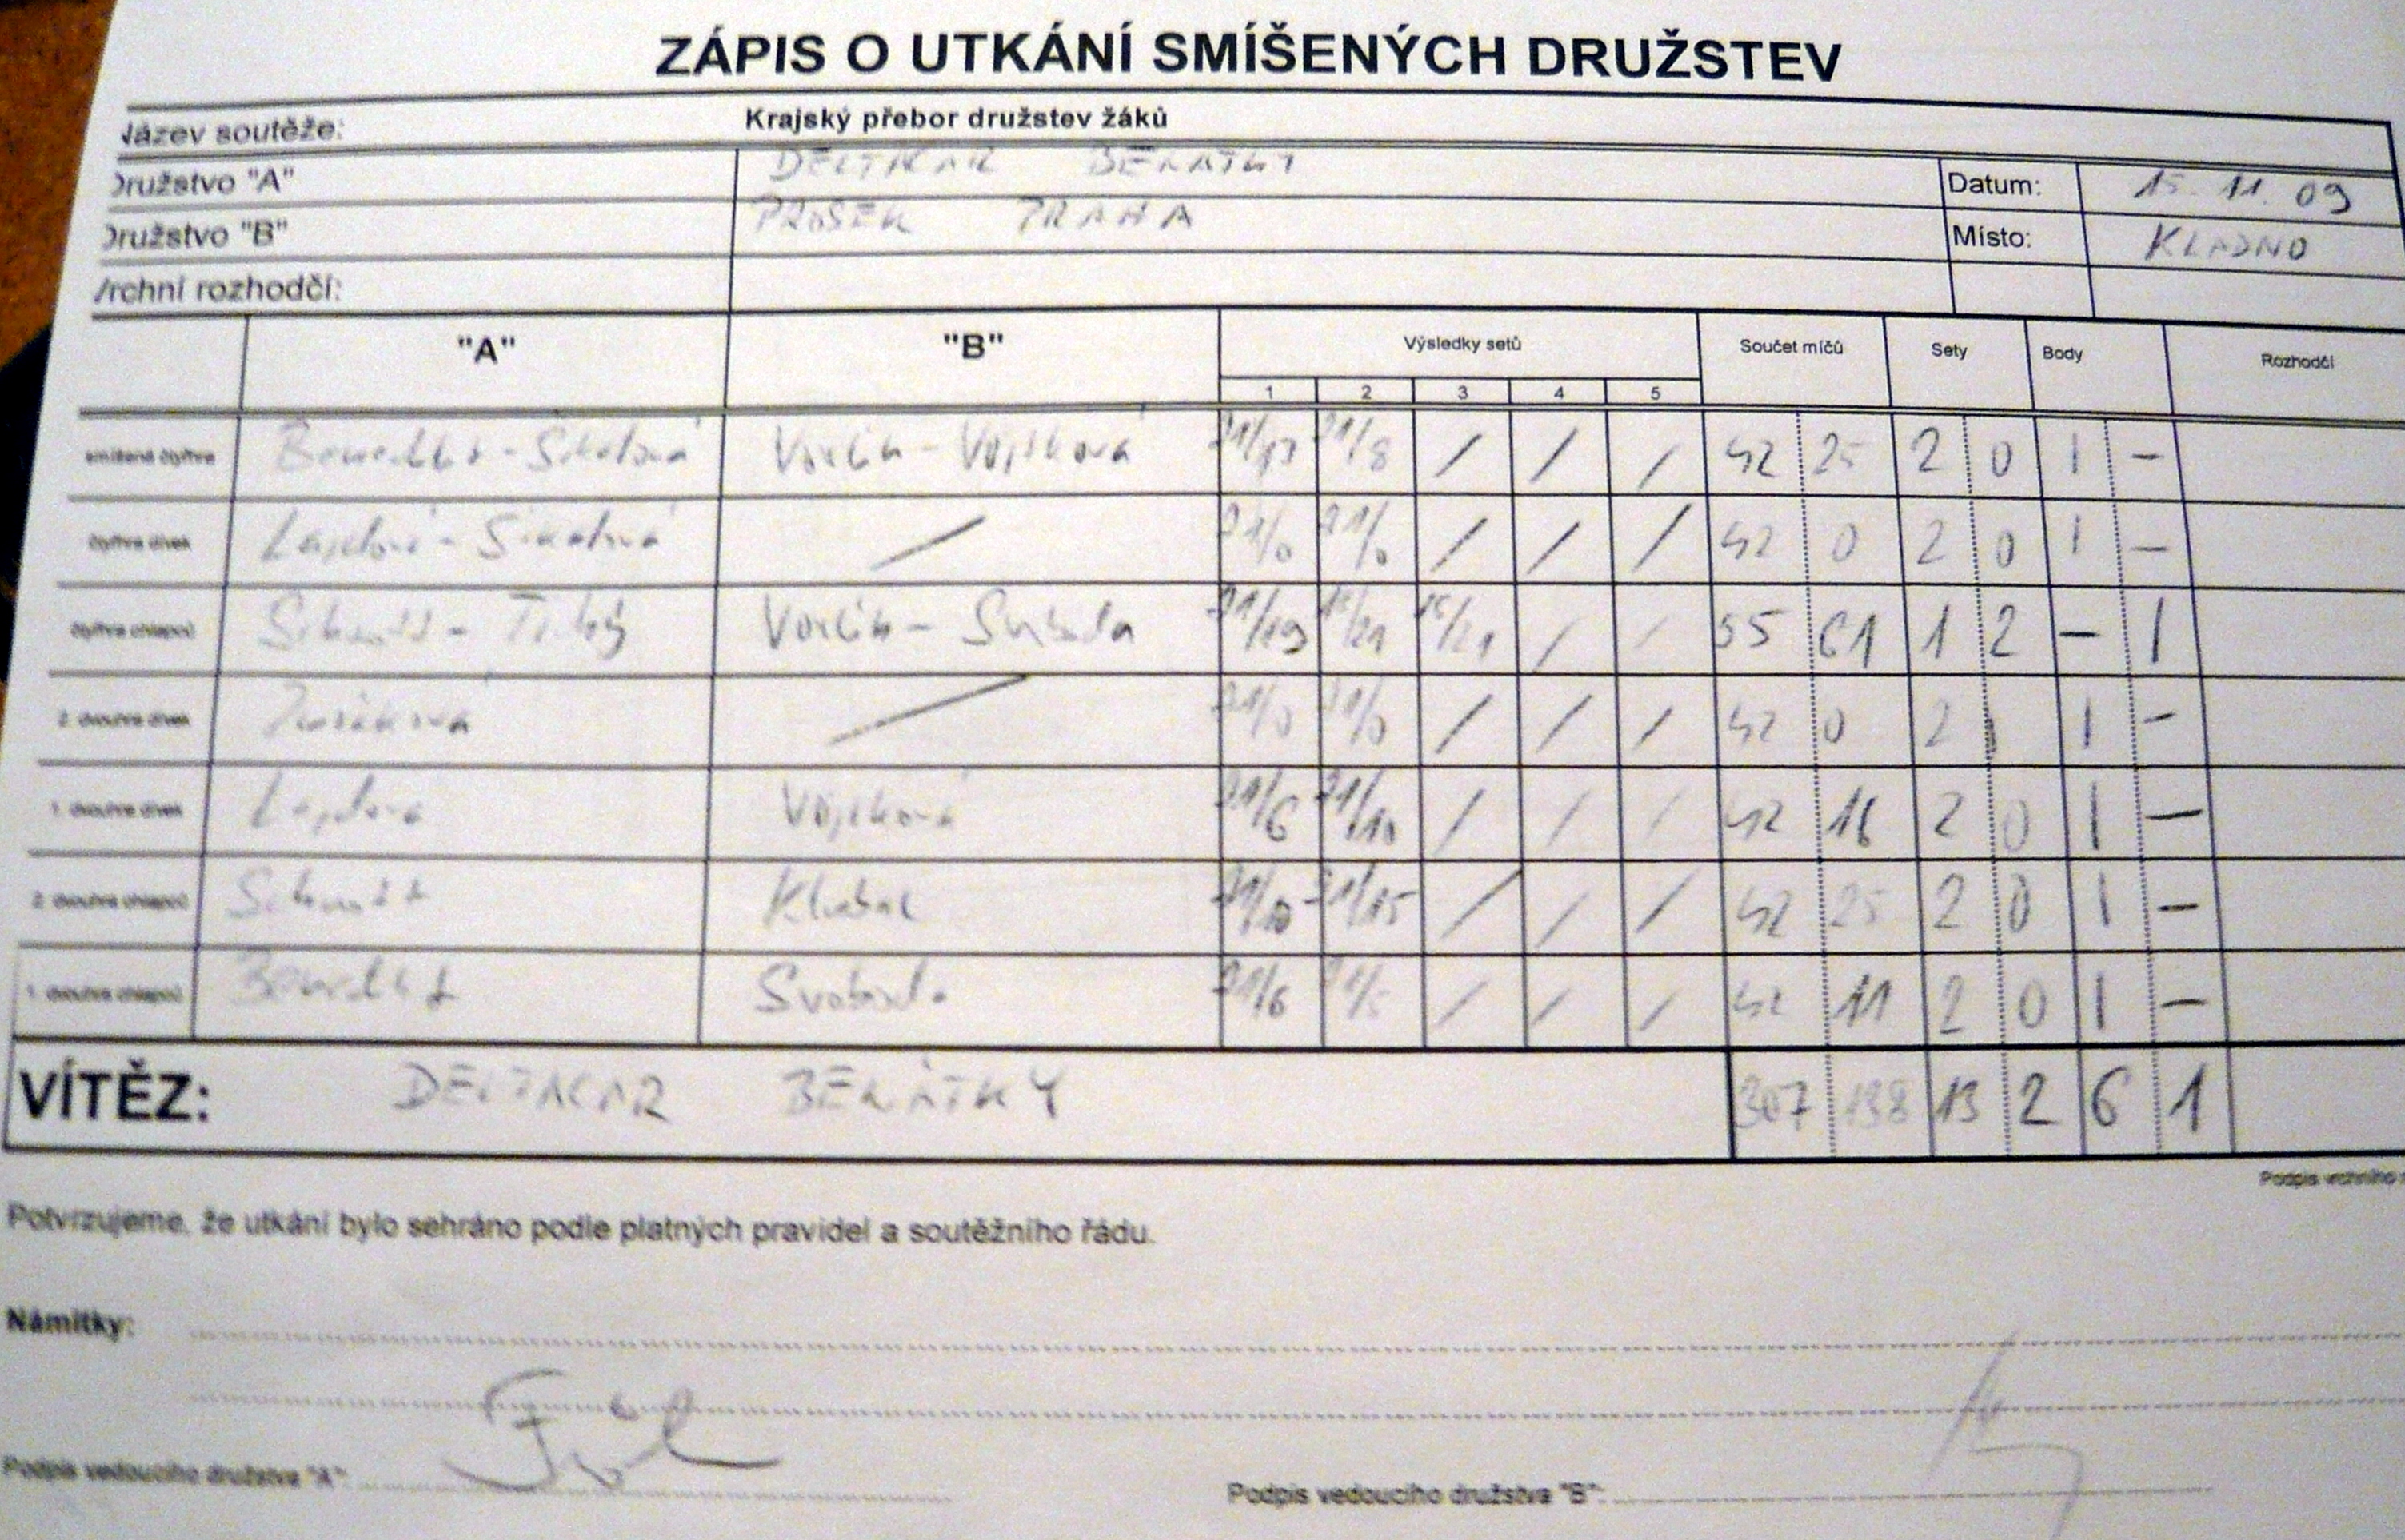 ZÁPIS O UTKÁNÍ SMÍŠENÝCH DRUŽSTEV
Název soutěže: Krajský přebor družstev žáků
Družstvo "A" DELTACAR BENÁTKY Datum: 15. 11. 09
Družstvo "B" PROSEK PRAHA Místo: KLADNO
Vrchní rozhodčí:
"A" "B" Výsledky setů Součet míčů Sety Body Rozhodčí
1 2 3 4 5
smíšená čtyřhra Benedikt - Sikalová Vorlík - Vojtková 21/17 21/8 / / / 42 25 2 0 1 -
čtyřhra dívek - Sikalová / 21/0 21/0 / / / 42 0 2 0 1 -
čtyřhra chlapců Schmidt - Tichý Vorlík - Svoboda 21/19 /21 /21 / / 55 61 1 2 - 1
2. dvouhra dívek / 21/0 21/0 / / / 42 0 2 1 -
1. dvouhra dívek Vojtková 21/6 21/10 / / / 42 16 2 0 1 -
2. dvouhra chlapců 21/10 21/15 / / / 42 25 2 0 1 -
1. dvouhra chlapců Benedikt Svoboda 21/6 21/5 / / / 42 11 2 0 1 -
VÍTĚZ: DELTACAR BENÁTKY 307 138 13 2 6 1
Podpis vrchního
Potvrzujeme, že utkání bylo sehráno podle platných pravidel a soutěžního řádu.
Námitky:
Podpis vedoucího družstva "A": Podpis vedoucího družstva "B":